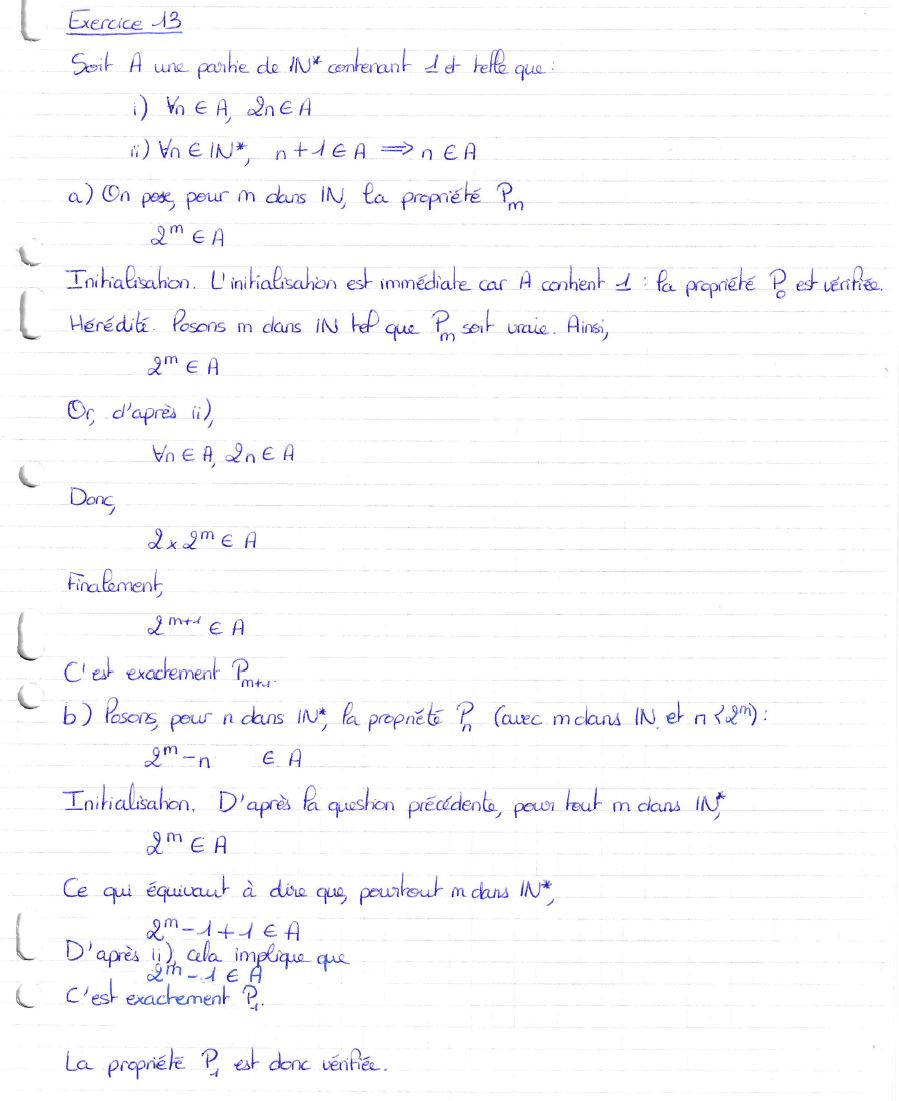 Exercice 13
Soit A une partie de IN* contenant 1 et telle que :
i) ∀n ∈ A, 2n ∈ A
ii) ∀n ∈ IN*, n + 1 ∈ A ⟹ n ∈ A
a) On pose, pour m dans IN, la propriété Pₘ
2ᵐ ∈ A
Initialisation. L'initialisation est immédiate car A contient 1 : la propriété P₀ est vérifiée.
Hérédité. Posons m dans IN tel que Pₘ soit vraie. Ainsi,
2ᵐ ∈ A
Or, d'après ii),
∀n ∈ A, 2n ∈ A
Donc,
2 × 2ᵐ ∈ A
Finalement,
2ᵐ⁺¹ ∈ A
C'est exactement Pₘ₊₁.
b) Posons, pour n dans IN*, la propriété Pₙ (avec m dans IN et n < 2ᵐ) :
2ᵐ - n ∈ A
Initialisation. D'après la question précédente, pour tout m dans IN*,
2ᵐ ∈ A
Ce qui équivaut à dire que, pour tout m dans IN*,
2ᵐ - 1 + 1 ∈ A
D'après ii), cela implique que
2ᵐ - 1 ∈ A
C'est exactement P₁.
La propriété P₁ est donc vérifiée.